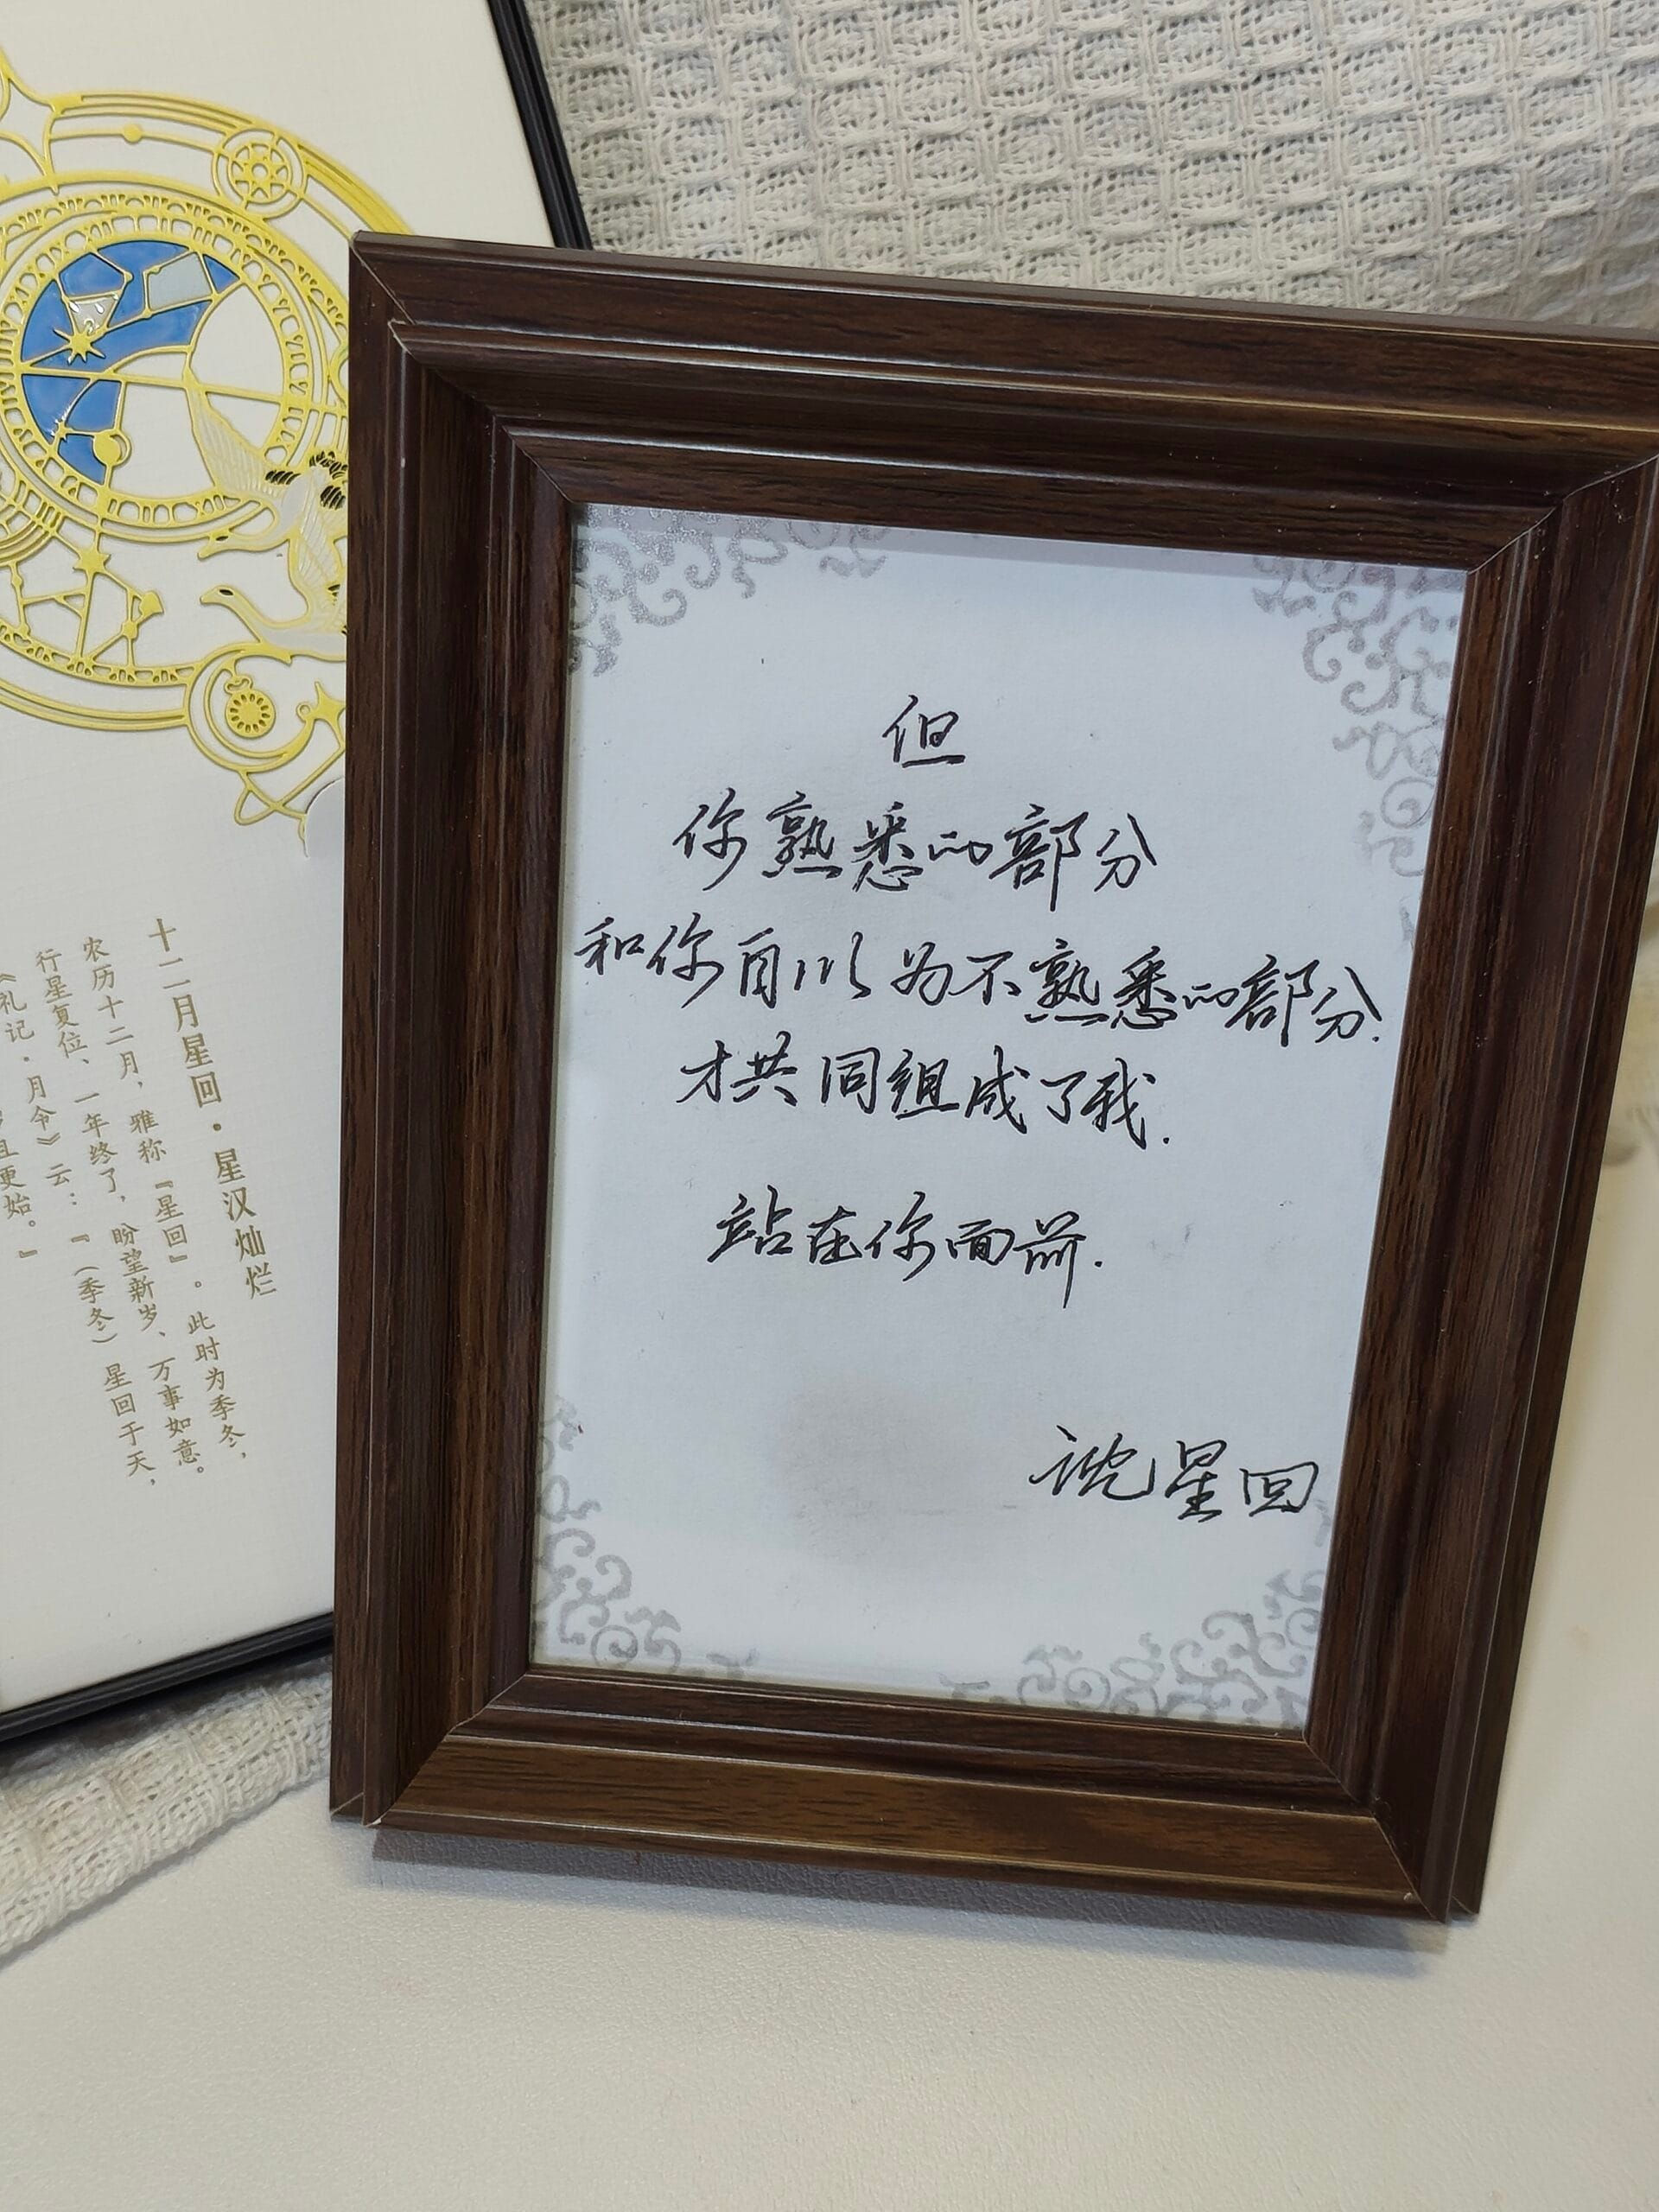 但
你熟悉的部分
和你自以为不熟悉的部分.
才共同组成了我.
站在你面前.
沈星回
十二月星回·星汉灿烂
农历十二月，雅称『星回』。此时为季冬，
行星复位、一年终了，盼望新岁、万事如意。
《礼记·月令》云：『（季冬）星回于天，
且更始。』